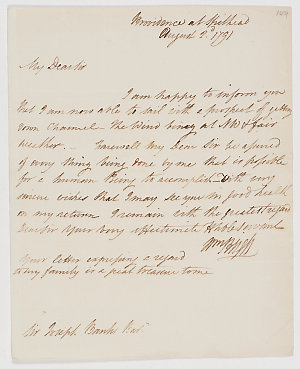 Providence at Spithead
August 2d 1791
My Dear Sir
I am happy to inform you
that I am now able to sail with a prospect of getting
down Channel - The Wind being at NW & fair
Weather. - Farewell My Dear Sir be assured
of every thing being done by me that is possible
for a human Being to accomplish with very
sincere wishes that I may see you in good health
on my return I remain with the greatest regard
Dear Sir Your very affectionate Hble servant
Wm Bligh
Your letter expressing a regard
to my family is a great treasure to me
Sir Joseph Banks Bart